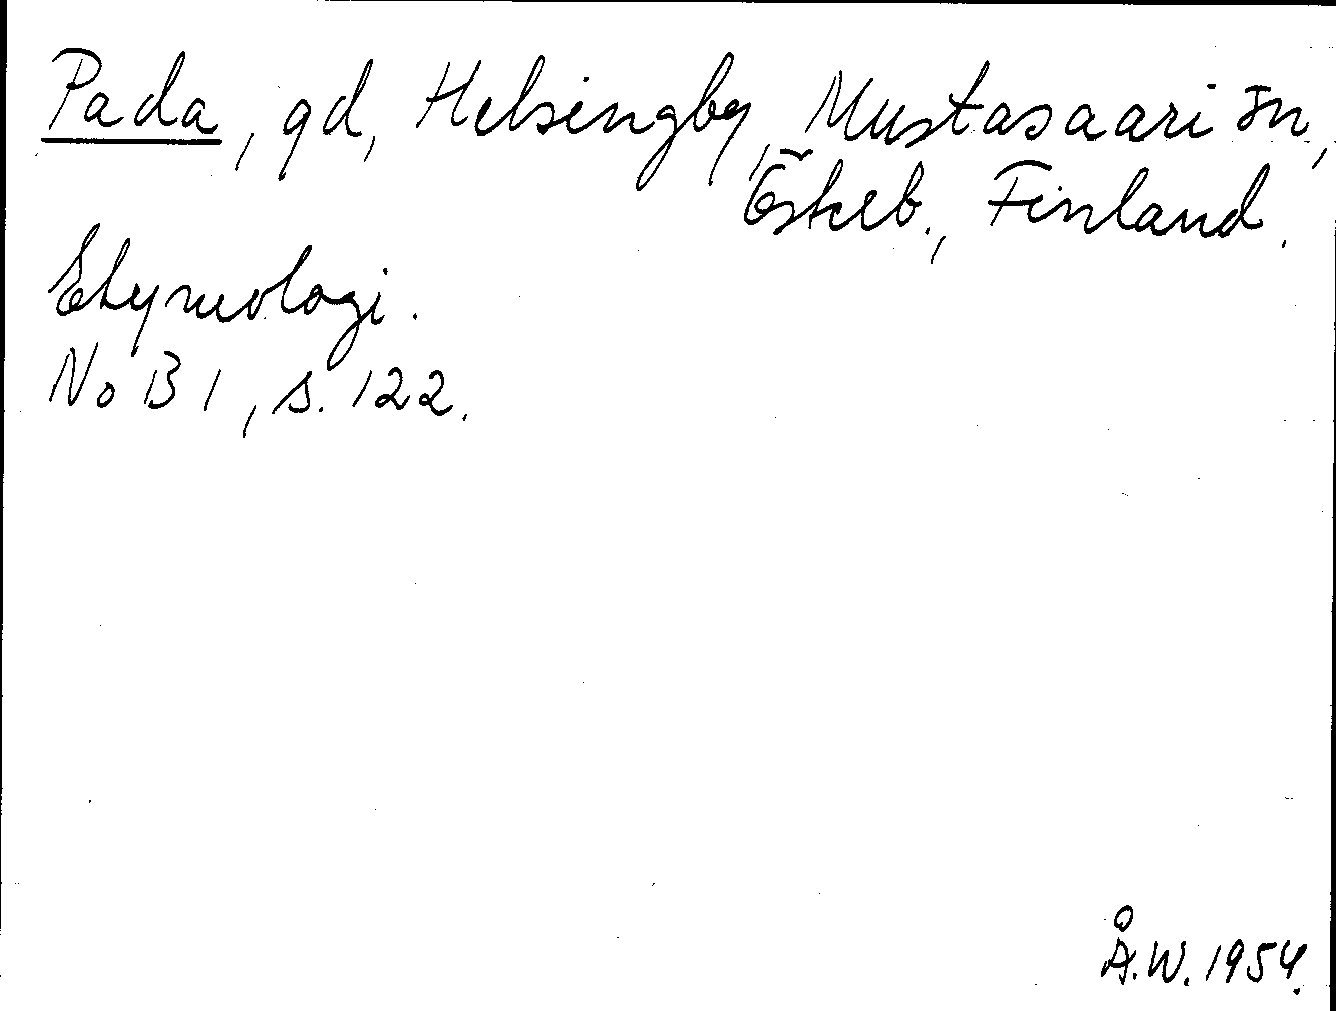 Pada, gd, Helsingby, Mustasaari sn,
Öskeb., Finland.
Etymologi.
NoB 1, s. 122.
Å.W. 1954.